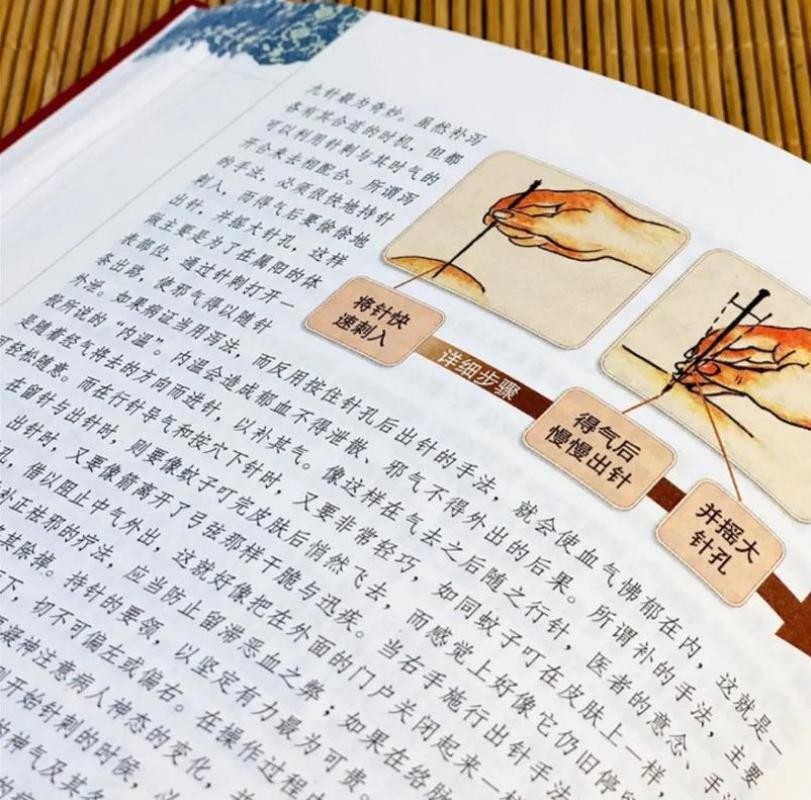 九针最为奇妙。虽然补泻
各有其合适的时机，但都
可以利用针刺与其时气的
开合来去相配合。所谓泻
的手法，必须很快地持针
刺入，而得气后要徐徐地
出针，并摇大针孔，这样
做主要是为了在属阳的体
表部位，通过针刺打开一
条出路，使邪气得以随针
外泄。如果病证当用泻法，而反用按住针孔后出针的手法，就会使血气怫郁在内，这就是一
般所说的“内温”。内温会造成郁血不得泄散、邪气不得外出的后果。所谓补的手法，主要
是随着经气将去的方向而进针，以补其气。像这样在气去之后随之行针，医者的意念、手
可轻松随意。而在行针导气和按穴下针时，又要非常轻巧，如同蚊子叮在皮肤上一样，
在留针与出针时，则要像蚊子叮完皮肤后悄然飞去，而感觉上好像它仍旧停
出针时，又要像箭离开了弓弦那样干脆与迅疾。当右手施行出针手法
孔，借以阻止中气外出，这就好像把在外面的门户关闭起来一样
补正祛邪的疗法，应当防止留滞恶血之弊；如果在络
持针的要领，以坚定有力最为可贵。
下，切不可偏左或偏右。在操作过程
凝神注意病人神态的变化，
开始针刺的时候，以
的神气及其
将针快
速刺入
详细步骤
得气后
慢慢出针
并摇大
针孔